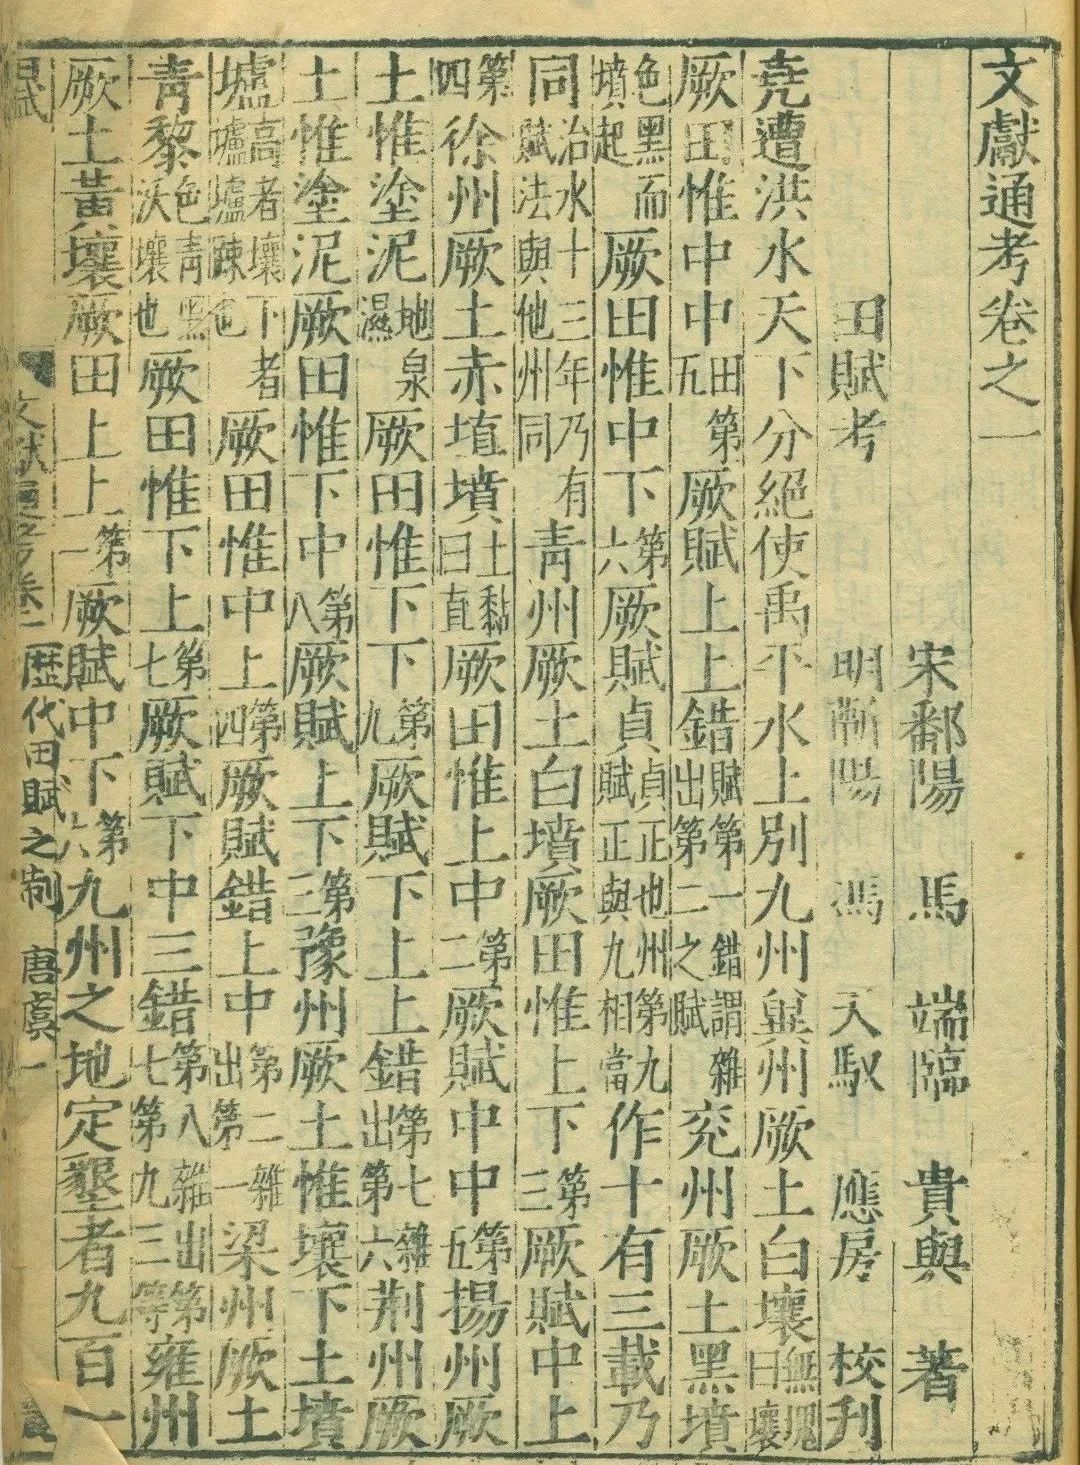 文獻通考卷之一
宋鄱陽馬端臨貴與著
田賦考明蘄陽馮天馭應房校刋
堯遭洪水天下分絕使禹平水土別九州兾州厥土白壤無塊曰壤
厥田惟中中田第五厥賦上上錯賦第一錯謂雜出第二之賦兖州厥土黑墳
色黑而墳起厥田惟中下第六厥賦貞貞正也州第九賦正與九相當作十有三載乃
同治水十三年乃有賦法與他州同青州厥土白墳厥田惟上下第三厥賦中上
第四徐州厥土赤埴墳土黏曰直厥田惟上中第二厥賦中中第五揚州厥
土惟塗泥地泉濕厥田惟下下第九厥賦下上上錯第七雜出第六荆州厥
土惟塗泥厥田惟下中第八厥賦上下第三豫州厥土惟壤下土墳
壚高者壤下者壚壚踈也厥田惟中上第四厥賦錯上中第二雜出第一梁州厥土
青黎色青黑沃壤也厥田惟下上第七厥賦下中三錯第八雜出第七第九三等雍州
厥土黃壤厥田上上第一厥賦中下第六九州之地定墾者九百一
文獻通考卷一 歷代田賦之制 唐虞 一